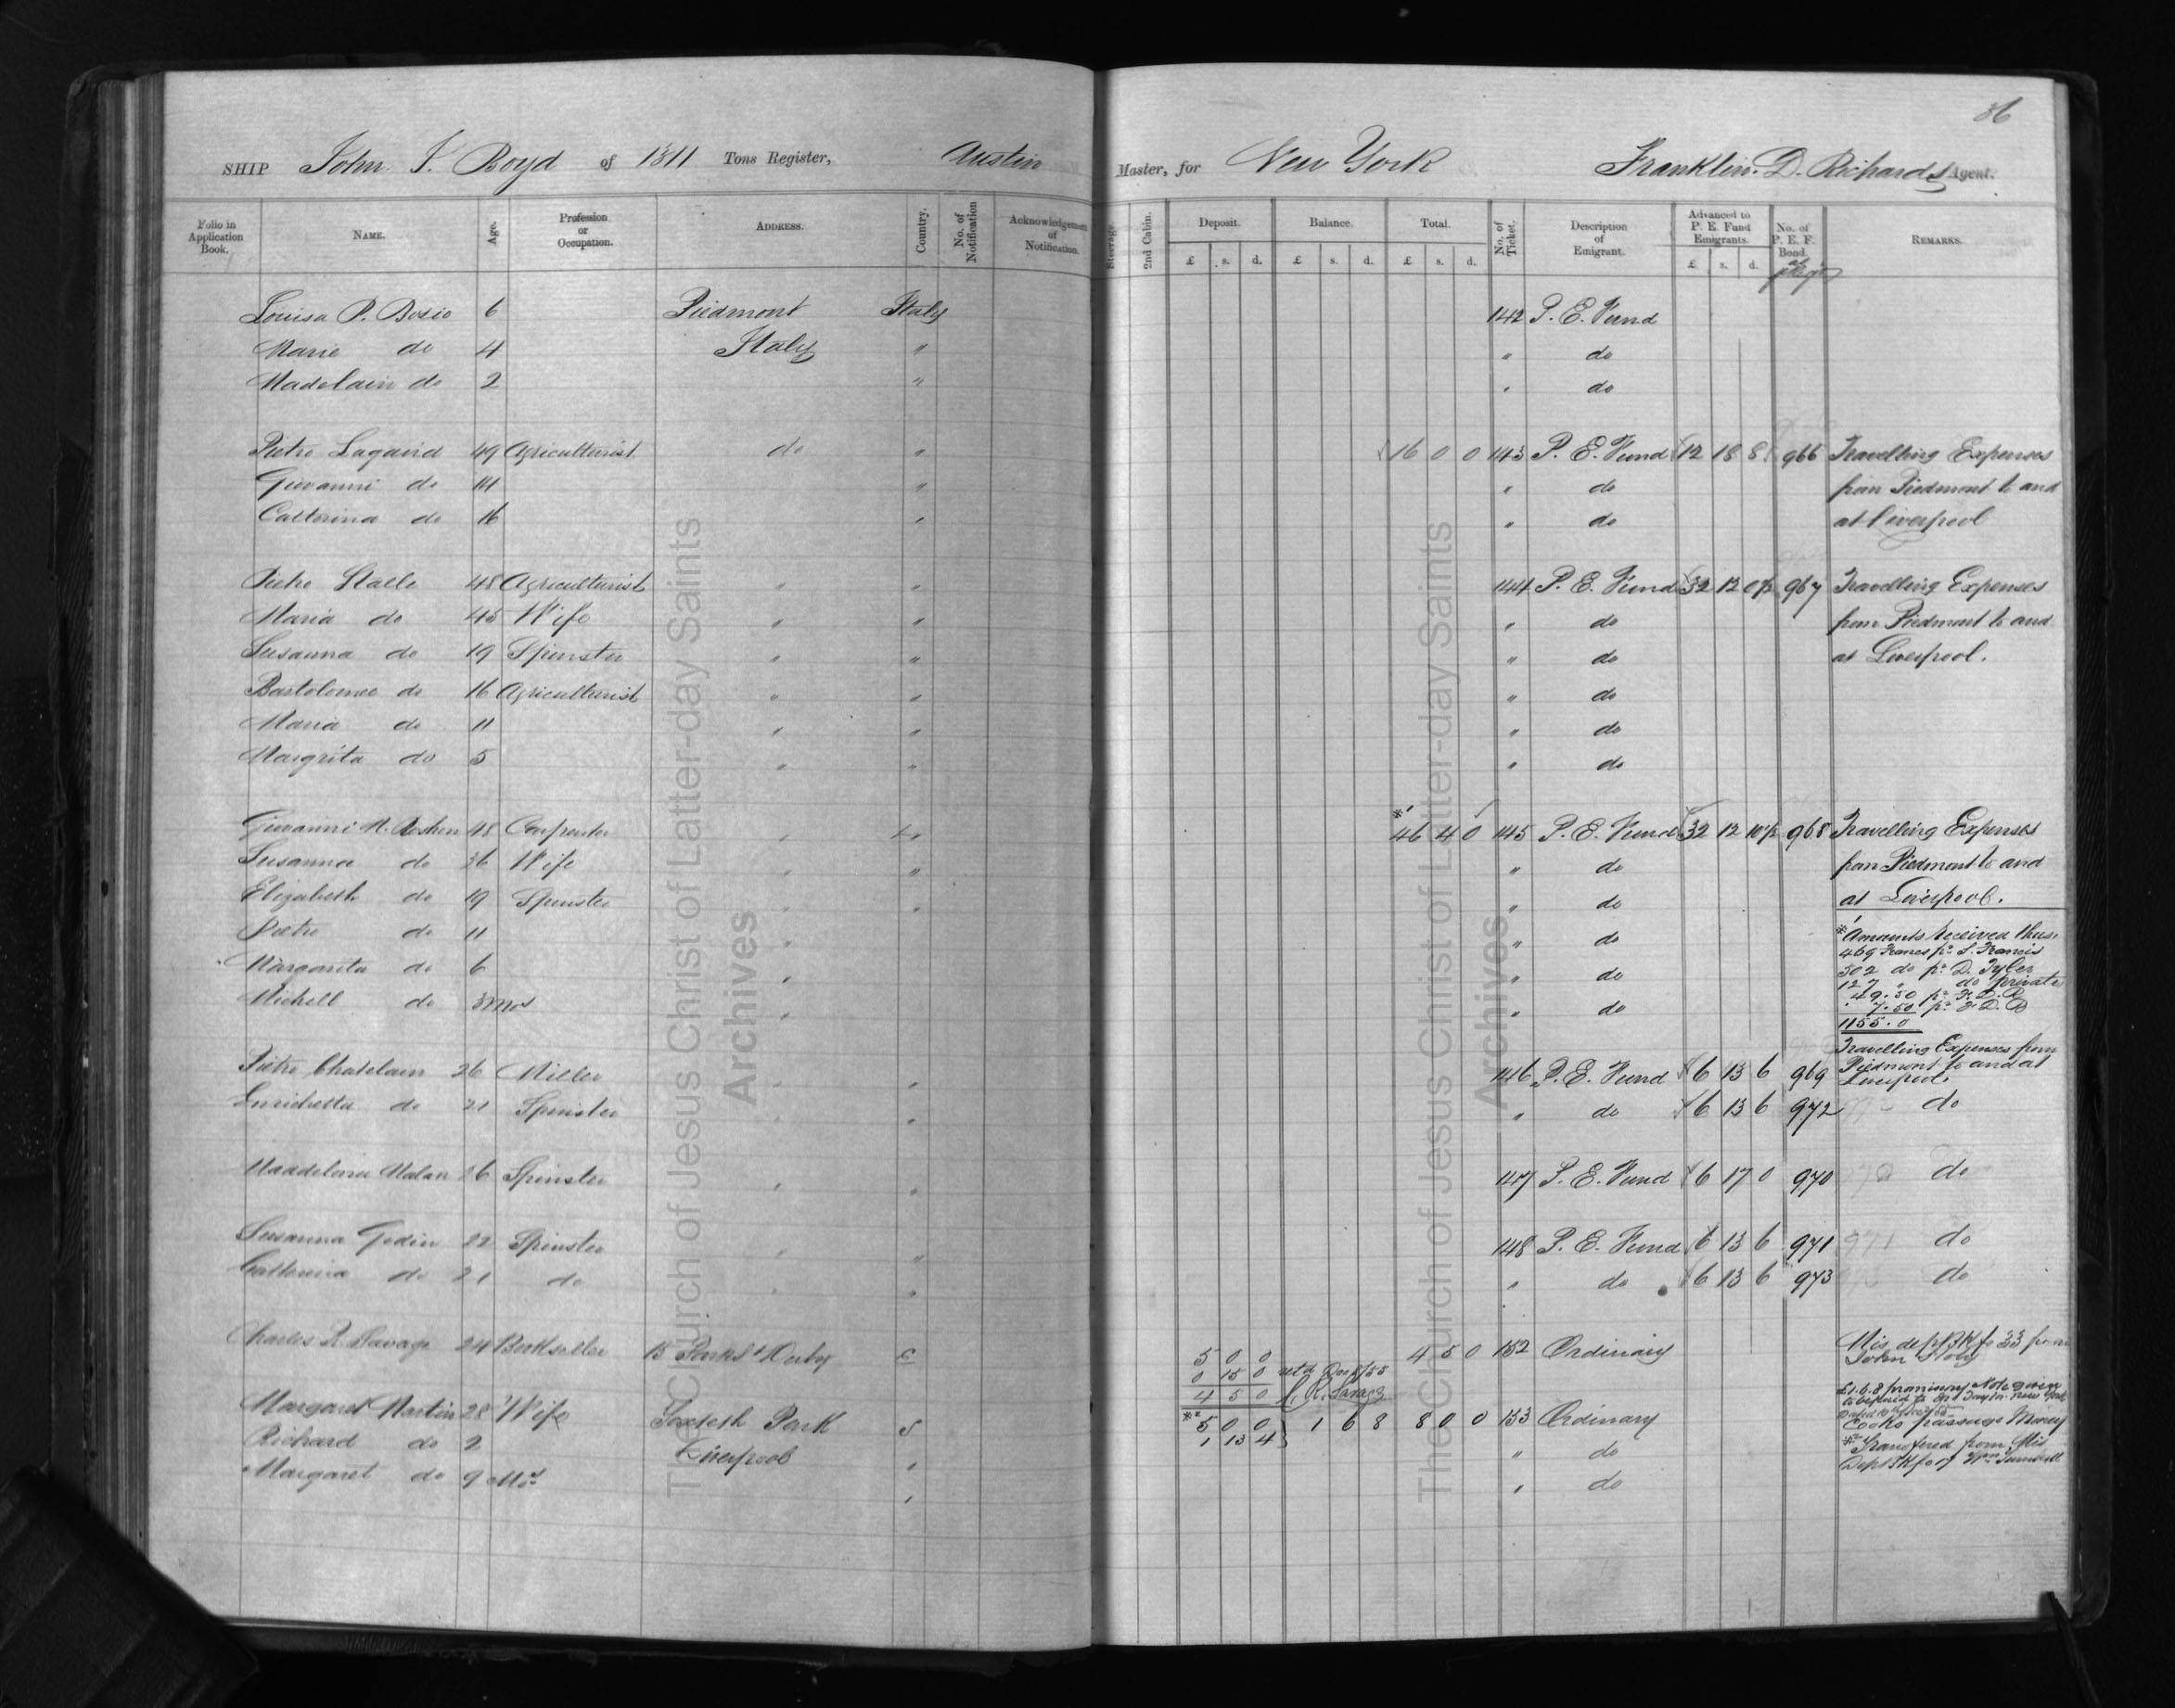 86
SHIP John J. Boyd of 1311 Tons Register, Austin Master, for New York Franklin. D. Richards Agent.
Folio in Application Book. NAME. Age. Profession or Occupation. ADDRESS. Country. No. of Notification Acknowledgement of Notification. Steerage. 2nd Cabin. Deposit. Balance. Total. No. of Ticket. Description of Emigrant. Advanced to P. E. Fund Emigrants. No. of P. E. F. Bond. REMARKS.
£ s. d. £ s. d. £ s. d. £ s. d.
Louisa P. Bosio 6 Piedmont Italy 142 P. E. Fund
Marie do 4 Italy " " do
Madelain do 2 " " do
Pietro Lagaird 49 Agriculturist do " 16 0 0 143 P. E. Fund 12 18 8 966 Travelling Expenses
Giovanni do 14 " " do from Piedmont to and
Catterina do 16 " " do at Liverpool
Pietro Stalle 48 Agriculturist " " 144 P. E. Fund 32 12 0½ 967 Travelling Expenses
Maria do 45 Wife " " " do from Piedmont to and
Susanna do 19 Spinster " " " do at Liverpool.
Bartolomeo do 16 Agriculturist " " " do
Maria do 11 " " " do
Margrita do 5 " " " do
Giovanni M. Roshon 48 Carpenter " " *¹ 46 4 0 145 P. E. Fund 32 12 10½ 968 Travelling Expenses
Susanna do 36 Wife " " " do from Piedmont to and
Elizabeth do 19 Spinster " " " do at Liverpool.
Pietro do 11 " " do *¹ Amounts received thus.
469 Francs pr. S. Francis
Margarita do 6 " " do 502 do pr. D. Tyler
127 " do private
Michell do 3 mos " " do 49.50 pr. F. D. R
7.50 pr. F. D. R
1155.0
Travelling Expenses from
Pietro Chatelain 26 Miller " " 146 P. E. Fund 6 13 6 969 Piedmont to and at
Liverpool.
Enrichetta do 21 Spinster " " " do 6 13 6 972 do
Maddelena Malan 26 Spinster " " 147 P. E. Fund 6 17 0 970 do
Susanna Godin 22 Spinster " " 148 P. E. Fund 6 13 6 971 do
Catterina do 21 do " " " do 6 13 6 973 do
Charles R. Savage 24 Bookseller 15 Park St Derby E 5 0 0 4 5 0 152 Ordinary Mis. dep. Bk fo 33 from
John
0 15 0 retd Dec 8/55
4 5 0 C. R. Savage
£1.6.8 promissory Note given
Margaret Martin 28 Wife Toxteth Park S *² 5 0 0 1 6 8 8 0 0 153 Ordinary Cooks passage Money
1 13 4
Richard do 2 Liverpool " " do *² Transfered from Mis
Margaret do 9 Mos " " do Dep. Bk fo 07 Wm Turnbull
The Church of Jesus Christ of Latter-day Saints
Archives
The Church of Jesus Christ of Latter-day Saints
Archives